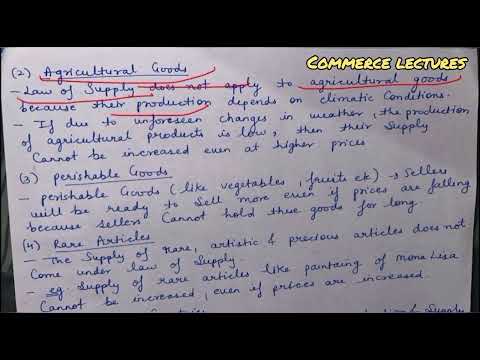 Commerce lectures
(2) Agricultural Goods
- Law of Supply does not apply to agricultural goods
because their production depends on climatic Conditions.
- If due to unforeseen changes in weather, the production
of agricultural products is low, then their Supply
Cannot be increased even at higher prices
(3) Perishable Goods
- Perishable Goods (like vegetables, fruits etc) → Sellers
will be ready to Sell more even if prices are falling
because sellers Cannot hold these goods for long.
(4) Rare Articles
- The Supply of Rare, artistic & precious articles does not
Come under law of Supply.
- eg. Supply of rare articles like painting of Mona Lisa
Cannot be increased, even if prices are increased.